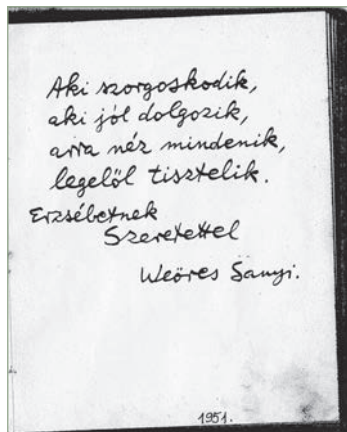 Aki szorgoskodik,
aki jól dolgozik,
arra néz mindenik,
legelöl tisztelik.
Erzsébetnek
Szeretettel
Weöres Sanyi.
1951.